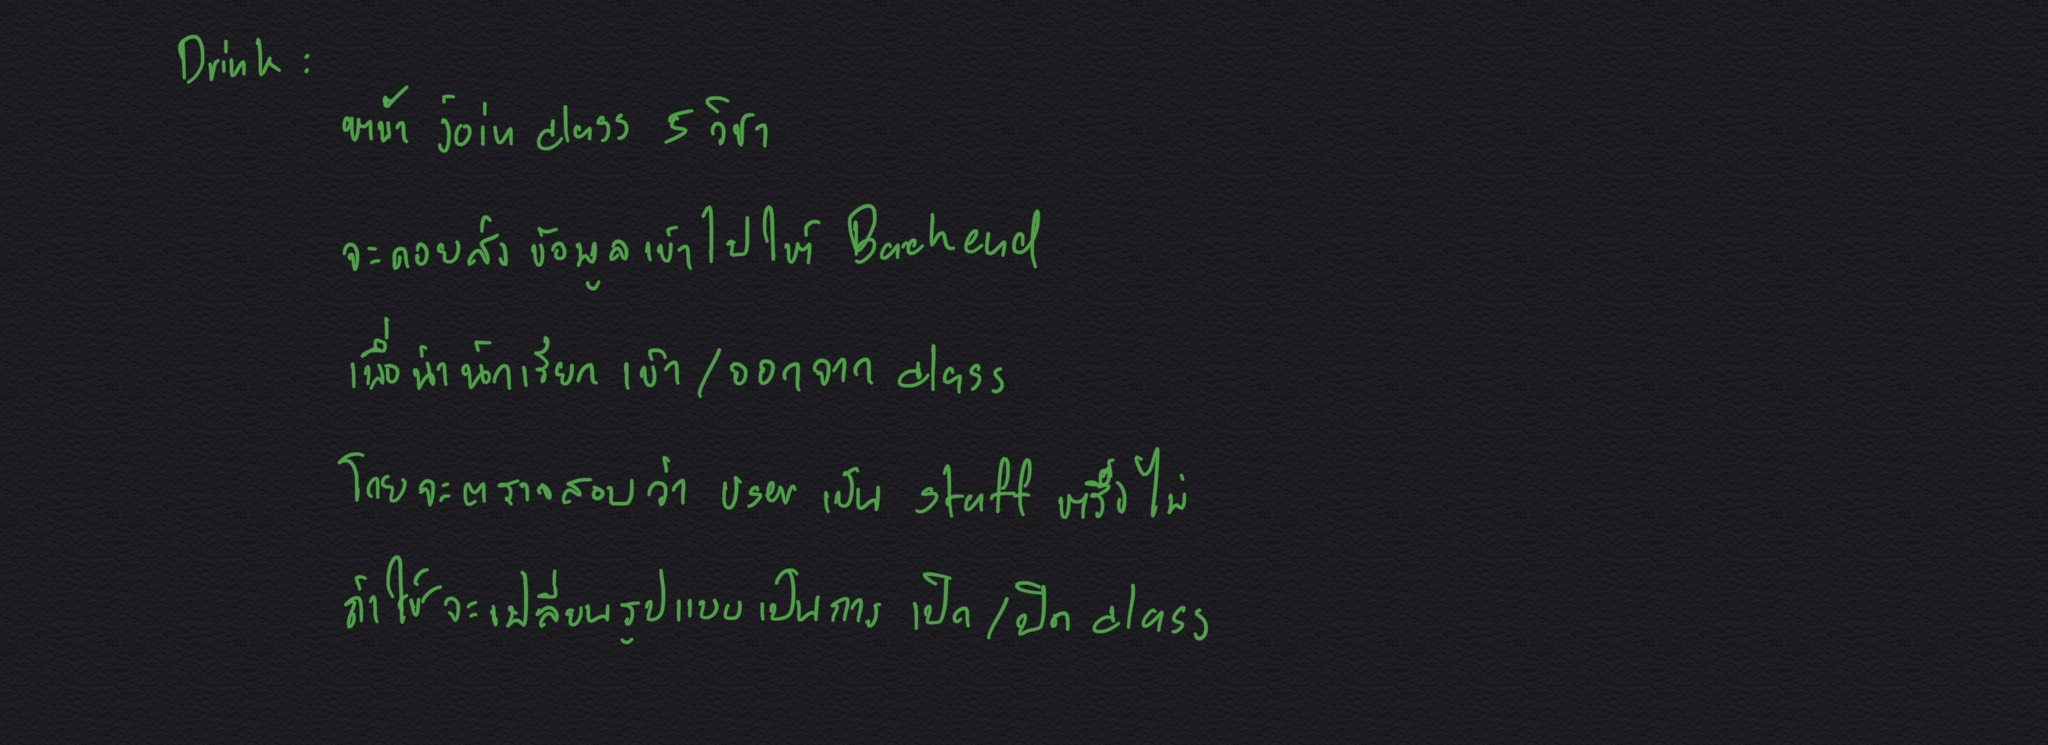 Drink :
หน้า join class 5 วิชา
จะคอยส่ง ข้อมูลเข้าไปให้ Backend
เพื่อนำนักเรียก เข้า / ออกจาก class
โดยจะตรวจสอบว่า user เป็น staff หรือไม่
ถ้าใช่จะเปลี่ยนรูปแบบเป็นการ เปิด / ปิด class